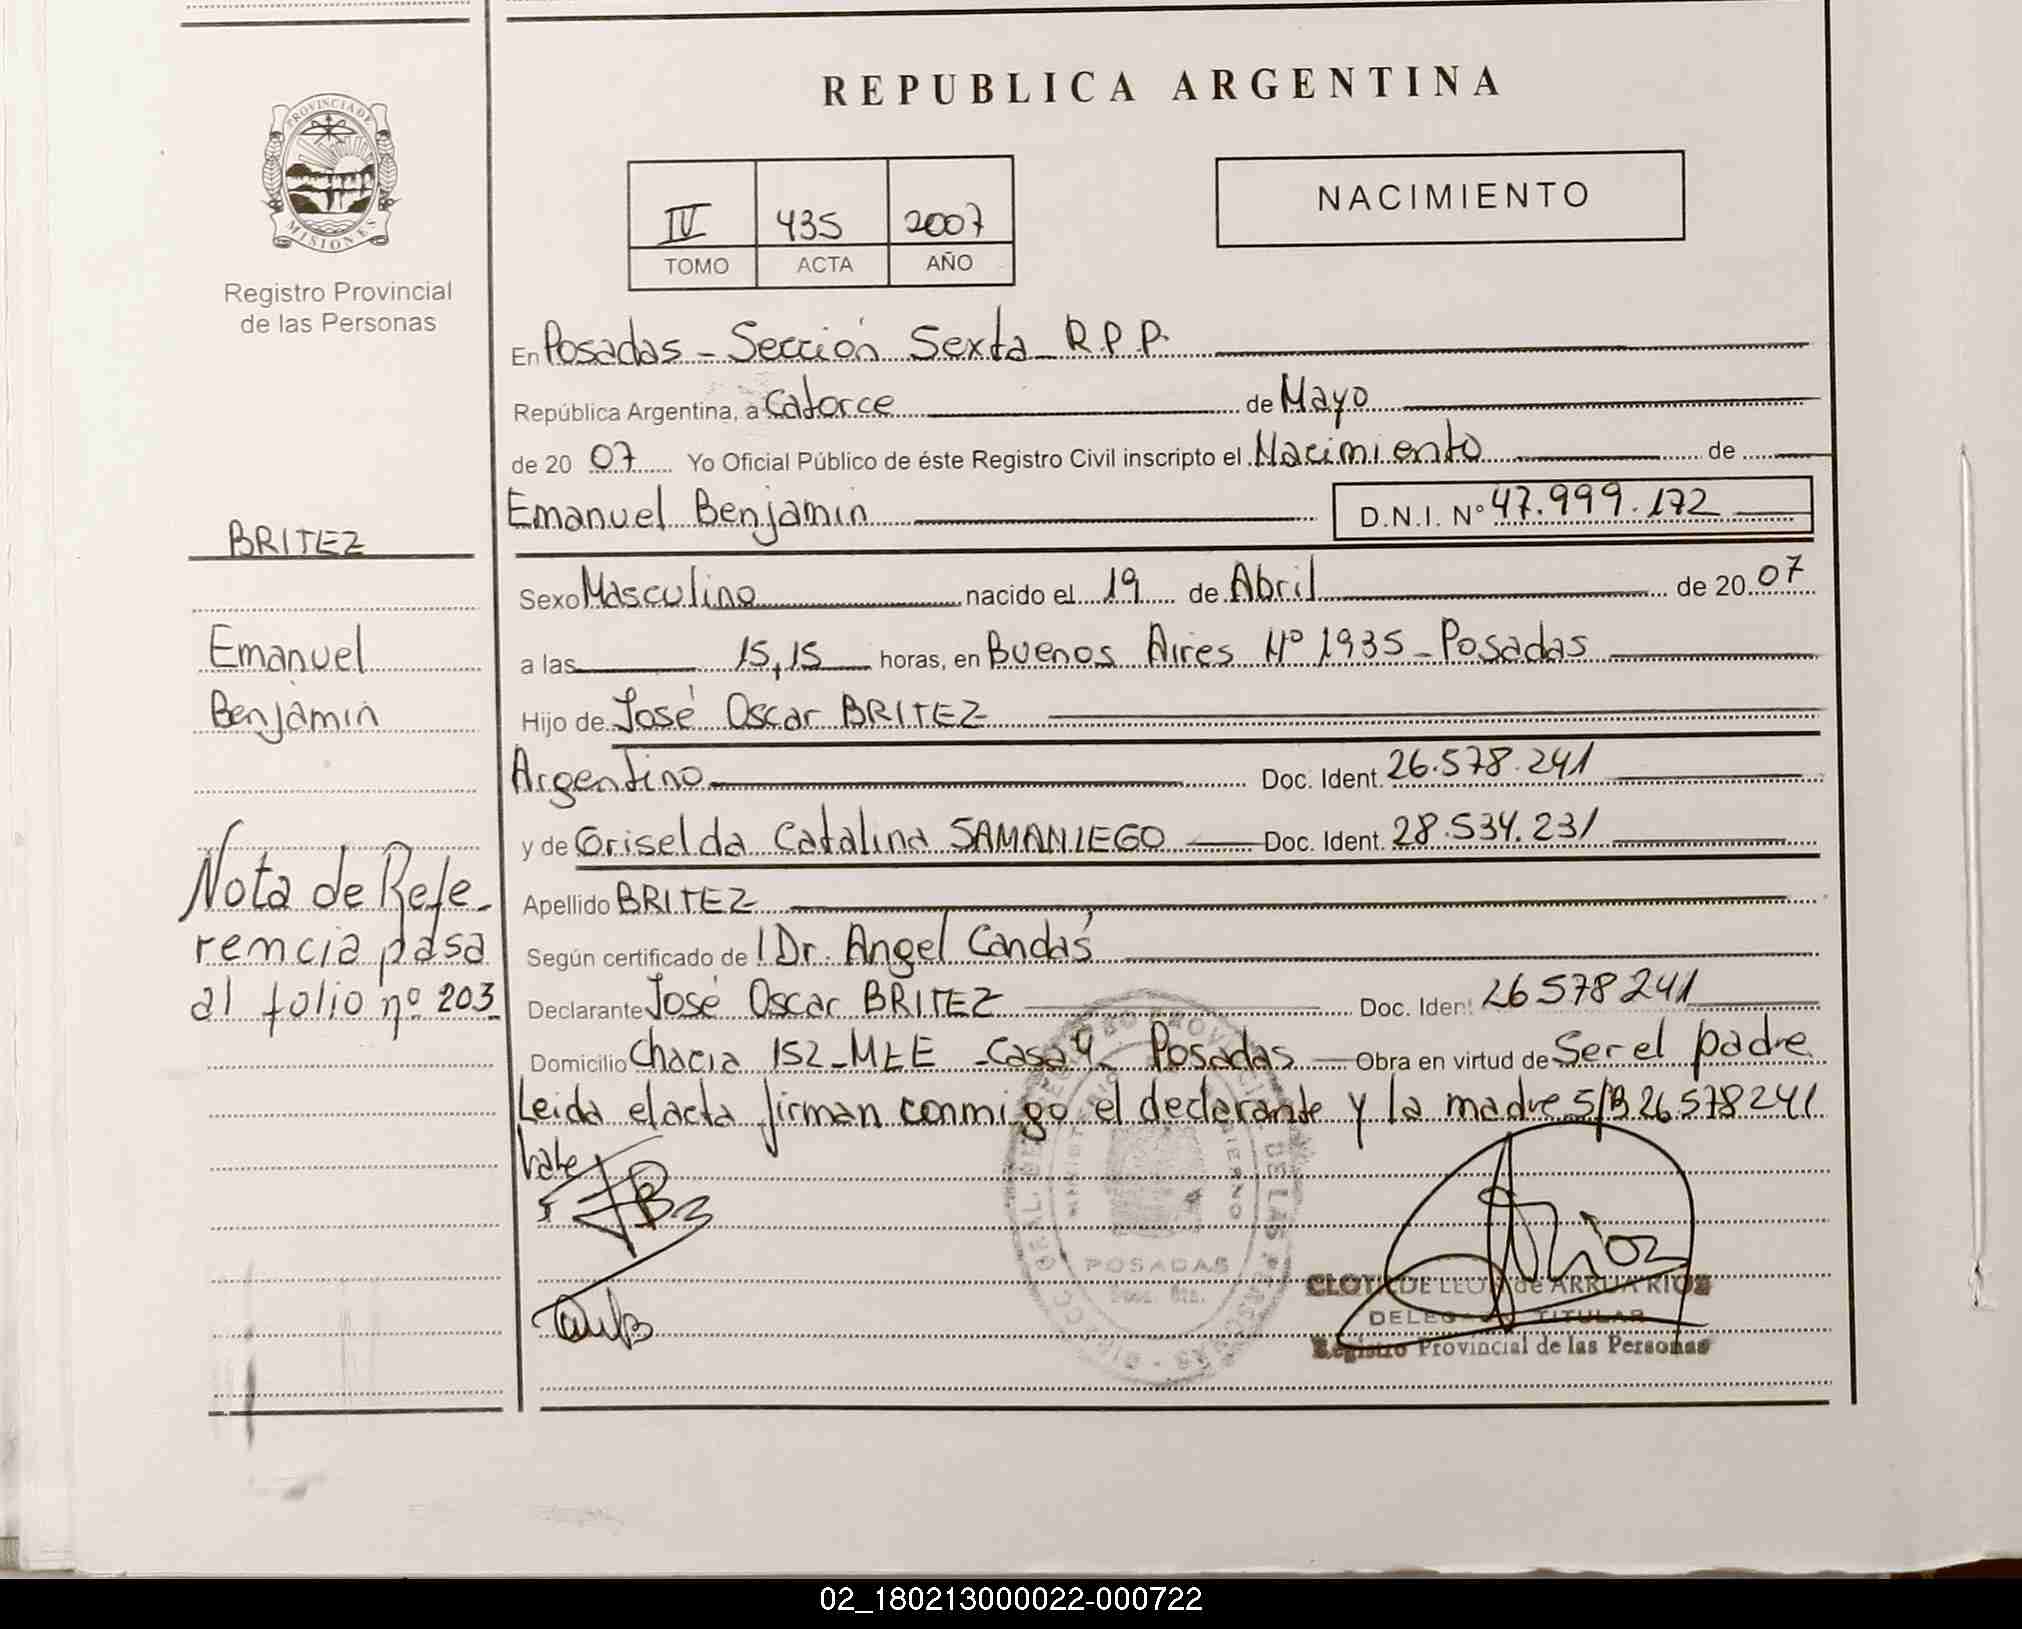 REPUBLICA ARGENTINA
PROVINCIA DE MISIONES
Registro Provincial
de las Personas
IV 435 2007
TOMO ACTA AÑO
NACIMIENTO
En Posadas - Sección Sexta R.P.P.
República Argentina, a Catorce de Mayo
de 20 07 Yo Oficial Público de éste Registro Civil inscripto el Nacimiento de
Emanuel Benjamin D.N.I. Nº 47.999.172
BRITEZ
Emanuel
Benjamin
Sexo Masculino nacido el 19 de Abril de 20 07
a las 15,15 horas, en Buenos Aires Nº 1935 - Posadas
Hijo de José Oscar BRITEZ
Argentino Doc. Ident. 26.578.241
y de Griselda Catalina SAMANIEGO Doc. Ident. 28.534.231
Apellido BRITEZ
Según certificado de Dr. Angel Candás
Declarante José Oscar BRITEZ Doc. Iden 26578241
Domicilio Chacra 152 - - Casa 9 - Posadas Obra en virtud de Ser el padre
Leida el acta firman conmigo el declarante y la madre S/B 26.578241
Vale
Nota de Refe-
rencia pasa
al folio nº 203
POSADAS
CLOTILDE LEON de ARRUA RIOS
DELEGADA TITULAR
Registro Provincial de las Personas
02_180213000022-000722